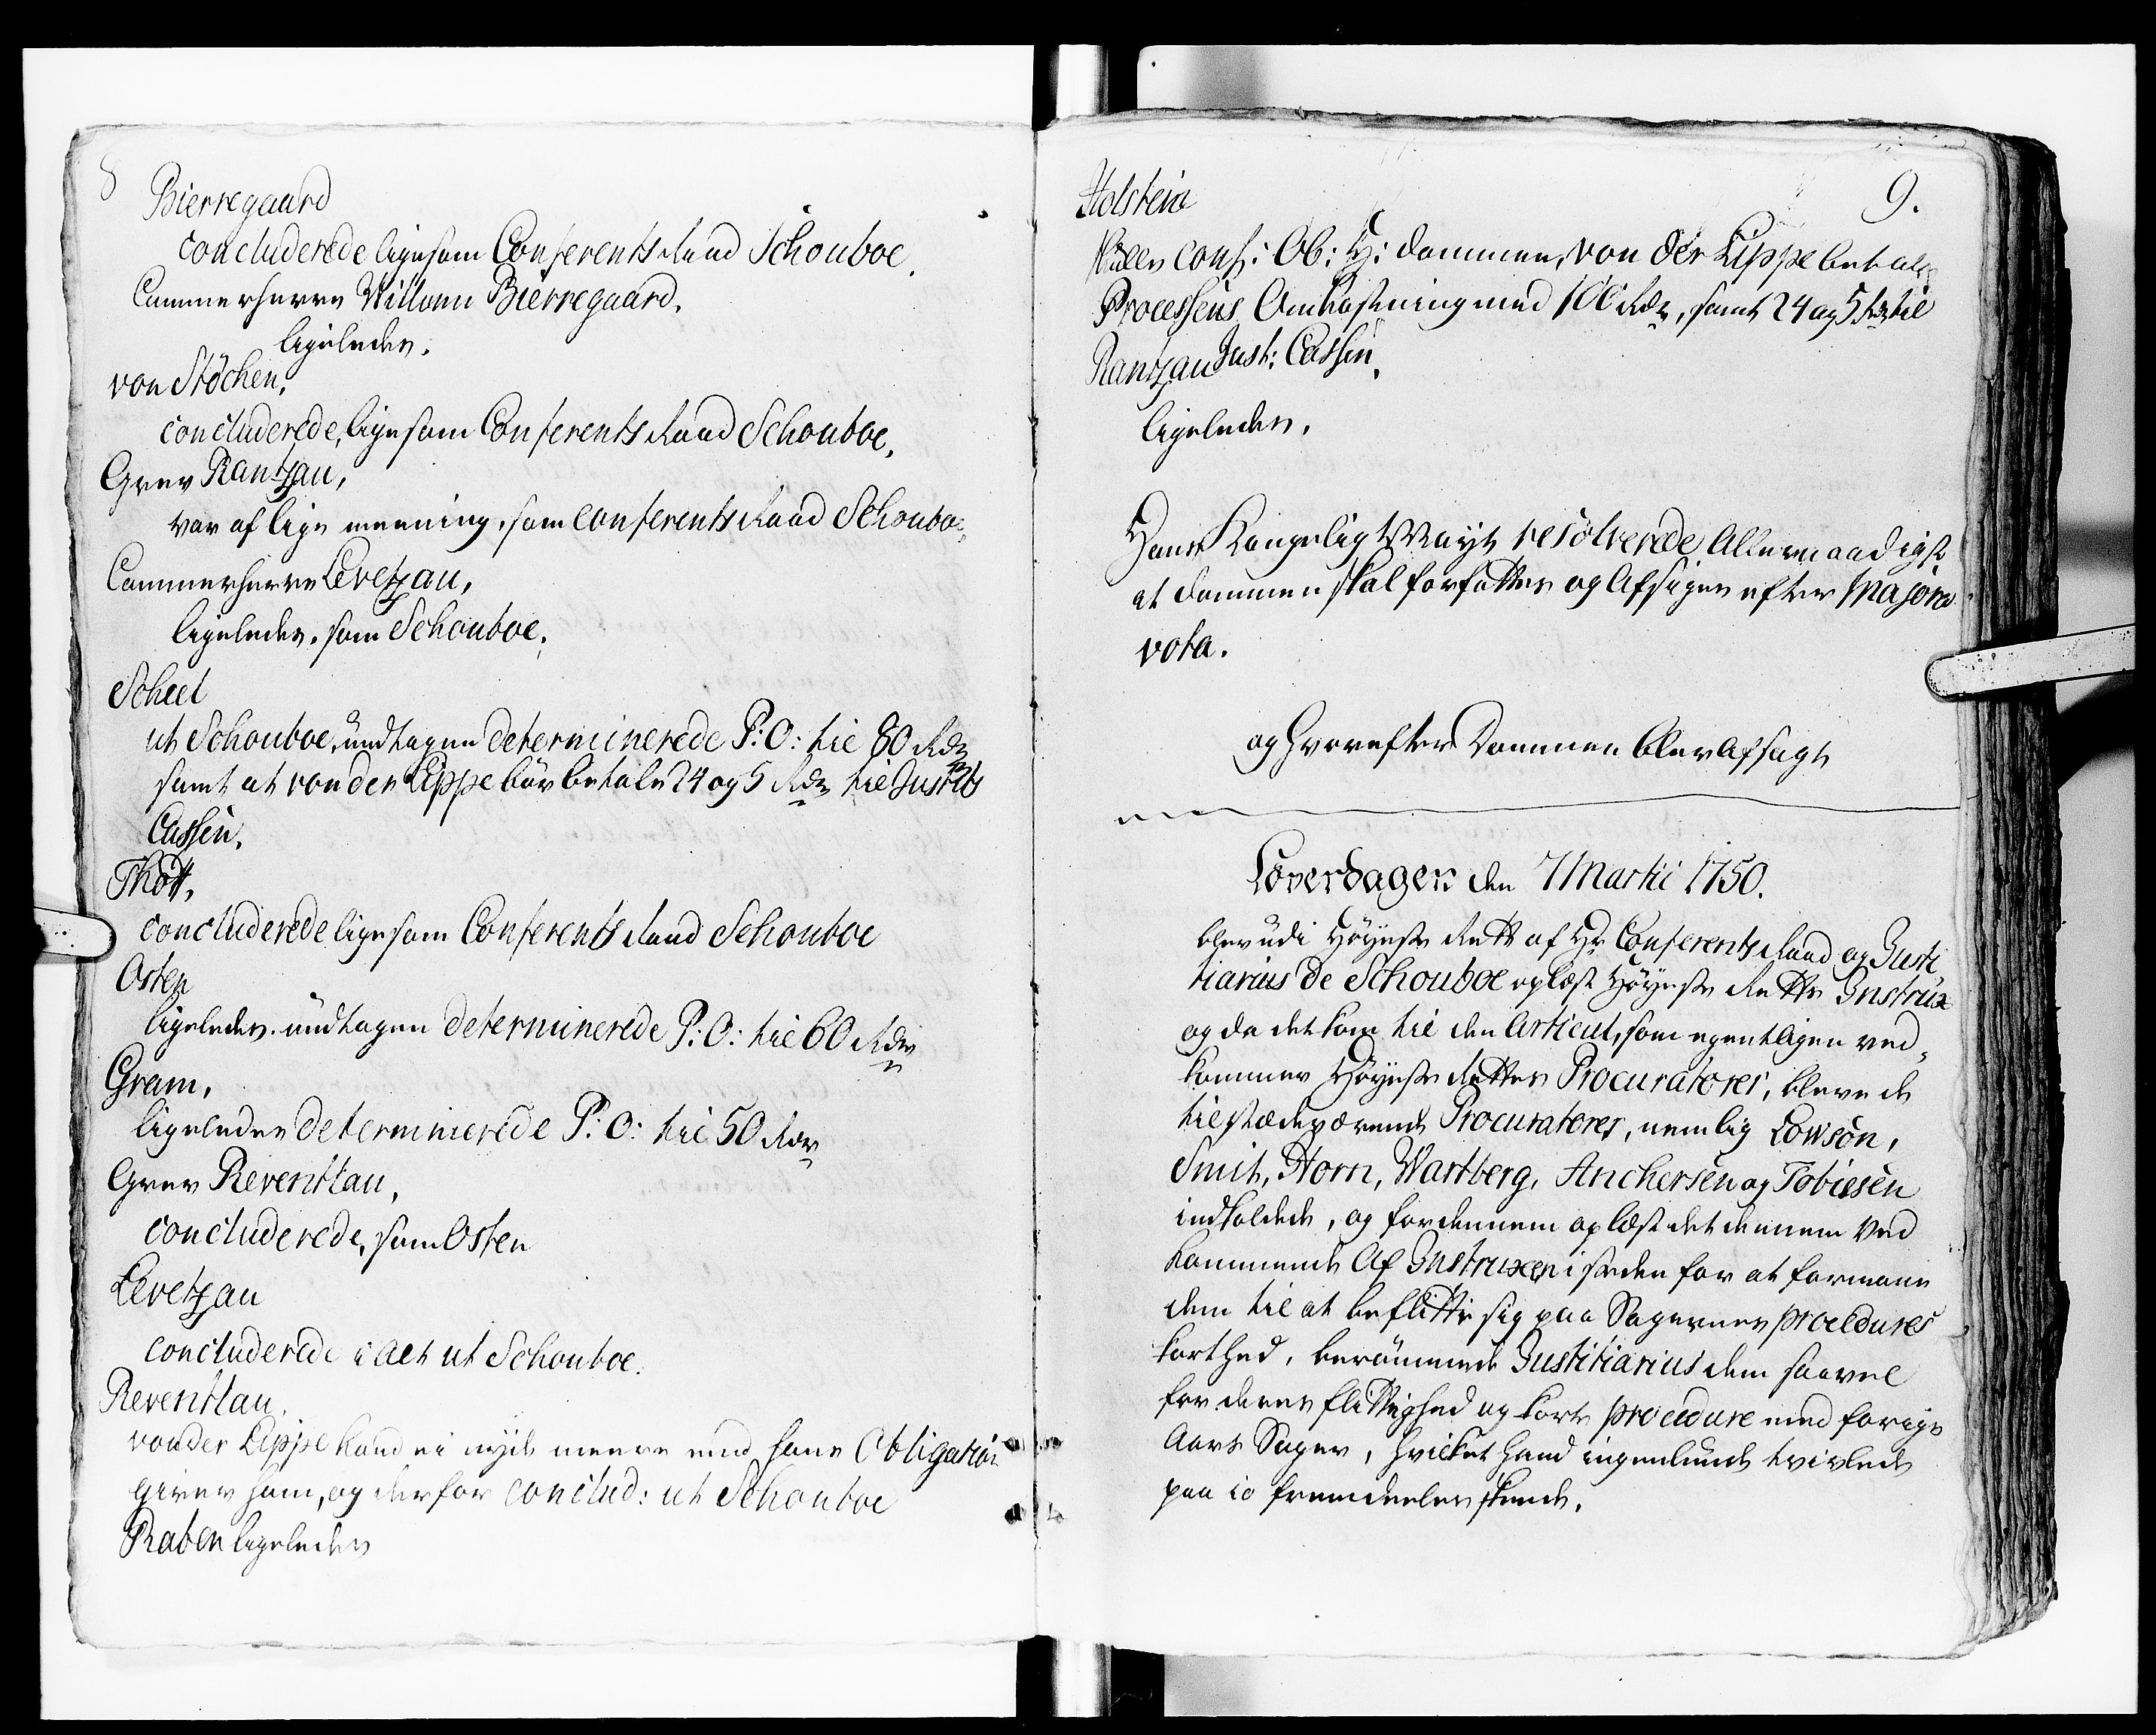 8
Bierregaard
concluderede ligesom Conferents Raad Schouboe.
Cammerherre Willum Bierregaard.
ligeledes.
von Stöcken,
concluderede, ligesom Conferents Raad Schouboe.
Grev Rantzau,
var af lige meening, som Conferents Raad Schouboe.
Cammerherre Levetzau,
ligeledes, som Schouboe.
Scheel
ut Schouboe, undtagen determinerede P: O: til 80 Rdr
samt at von der Lippe bør betale 24 og 5 Rdr til Justits
Cassen.
Thott,
concluderede ligesom Conferents Raad Schouboe
Osten
ligeledes. undtagen determinerede P: O: til 60 Rdr
Gram,
ligeledes determinerede P: O: til 50 Rdr
Grev Reventlau,
concluderede, som Osten
Levetzau
concluderede i alt ut Schouboe.
Reventlau,
von der Lippe kand ei nyde meere end hans Obligation
giver ham, og derfor conclud: ut Schouboe
Raben ligeledes
9.
Holstein
conf: Ob: H: dommen, von der Lippe betaler
Processens Omkostning med 100 Rdr, samt 24 og 5 Rdr til
Just: Cassen.
Rantzau
ligeledes.
Hans Kongelig Mayt resolverede Allernaadigst
at dommen skal forfattes og Afsiges efter Majora
vota.
og hvorefter Dommen blev Afsagt
Løverdagen den 7 Martii 1750.
blev udi Høyeste Rett af Hr Conferents Raad og Justi,
tiarius de Schouboe oplæst Høyeste Retts Instrux
og da det kom til den Articul, som egentligen ved,
kommer Høyeste Rettes Procuratorer, bleve de
tilstædeværende Procuratorer, nemlig Lowson,
Smit, Horn, Wartberg, Anchersen og Tobiesen
indkaldede, og for dennem oplæst det dennem ved
kommende Af Instruxen i steden for at formane
dem til at beflitte sig paa Sagernes procedures
korthed, berømmede Justitiarius dem saavel
for deres flittighed og korte procedure med forige
Aars Sager, hvilket hand ingenlunde tvivlede
paa io fremdeeles skeede.